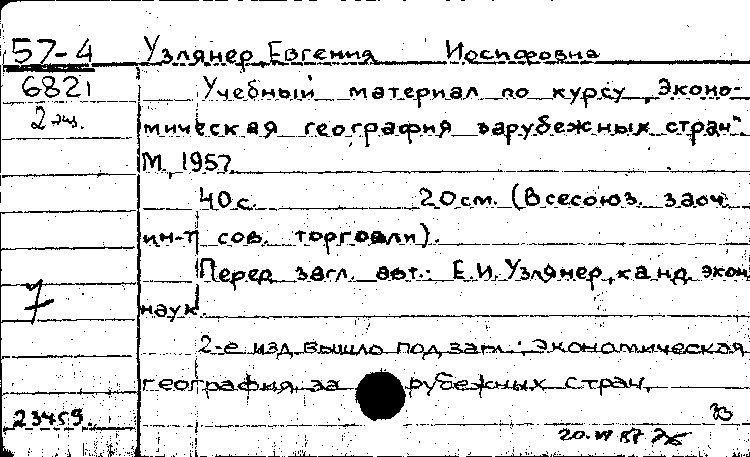 57-4 Узлянер, Евгения Иосифовна
6821 Учебный материал по курсу „Эконо-
2 экз. мическая география зарубежных стран".
М., 1957.
40 с. 20 см. (Всесоюз. заоч.
ин-т сов. торговли).
Перед загл. авт.: Е.И. Узлянер, канд. экон.
7 наук.
2-е изд. вышло под загл.: Экономическая
география зарубежных стран.
23459